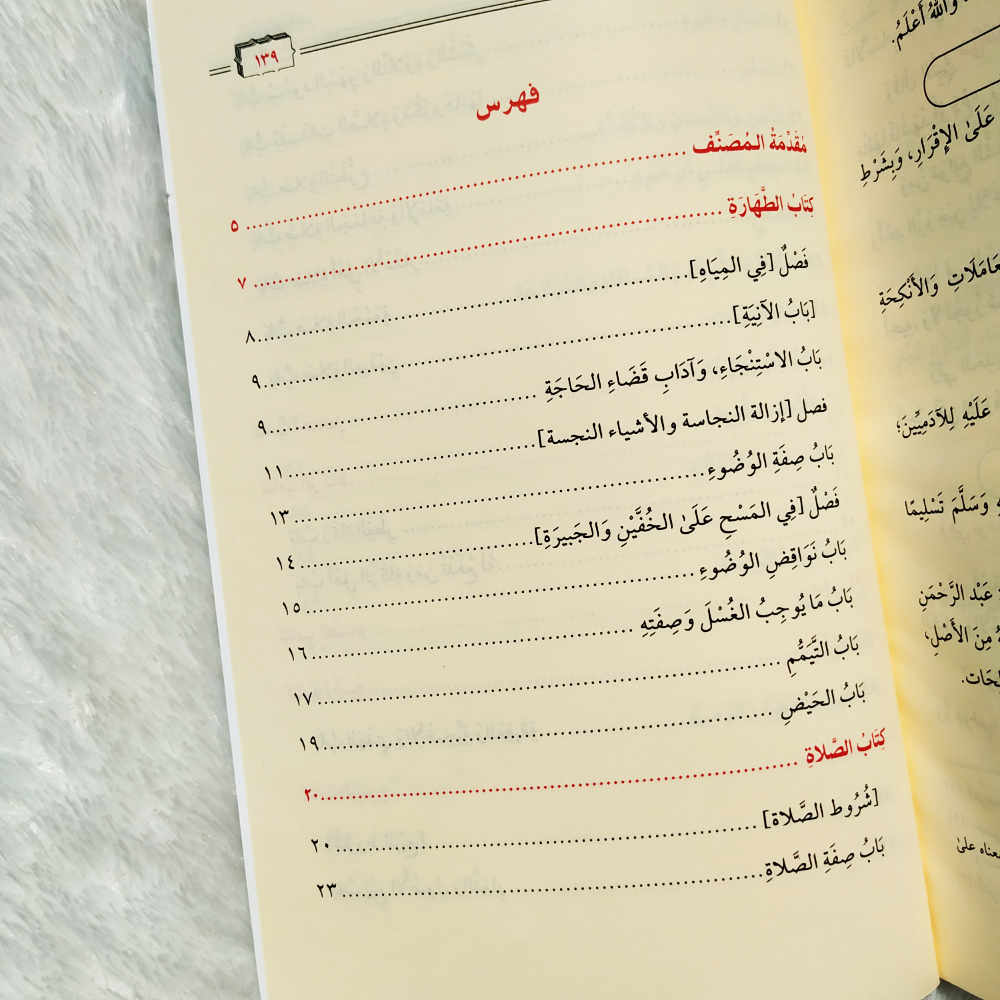 ١٣٩
فهرس
مُقَدِّمَةُ المُصَنِّف ... ٥
كِتَابُ الطَّهَارَةِ ... ٧
فَصْلٌ [فِي المِيَاهِ] ... ٨
[بَابُ الآنِيَةِ] ... ٩
بَابُ الاسْتِنْجَاءِ، وَآدَابِ قَضَاءِ الحَاجَةِ ... ٩
فصل [إزالة النجاسة والأشياء النجسة] ... ١١
بَابُ صِفَةِ الوُضُوءِ ... ١٣
فَصْلٌ [فِي المَسْحِ عَلَىٰ الخُفَّيْنِ وَالجَبِيرَةِ] ... ١٤
بَابُ نَوَاقِضِ الوُضُوءِ ... ١٥
بَابُ مَا يُوجِبُ الغُسْلَ وَصِفَتِهِ ... ١٦
بَابُ التَّيَمُّمِ ... ١٧
بَابُ الحَيْضِ ... ١٩
كِتَابُ الصَّلاةِ ... ٢٠
[شُرُوط الصَّلاة] ... ٢٠
بَابُ صِفَةِ الصَّلاةِ ... ٢٣
وَاللهُ أَعْلَمُ.
عَلَىٰ الإِقْرَارِ، وَبِشَرْطِ
وَالأَنْكِحَةِ
عَلَيْهِ لِلآدَمِيِّينَ؛
وَسَلَّمَ تَسْلِيمًا
عَبْد الرَّحْمَنِ
مِنَ الأَصْلِ،
معناه علىٰ